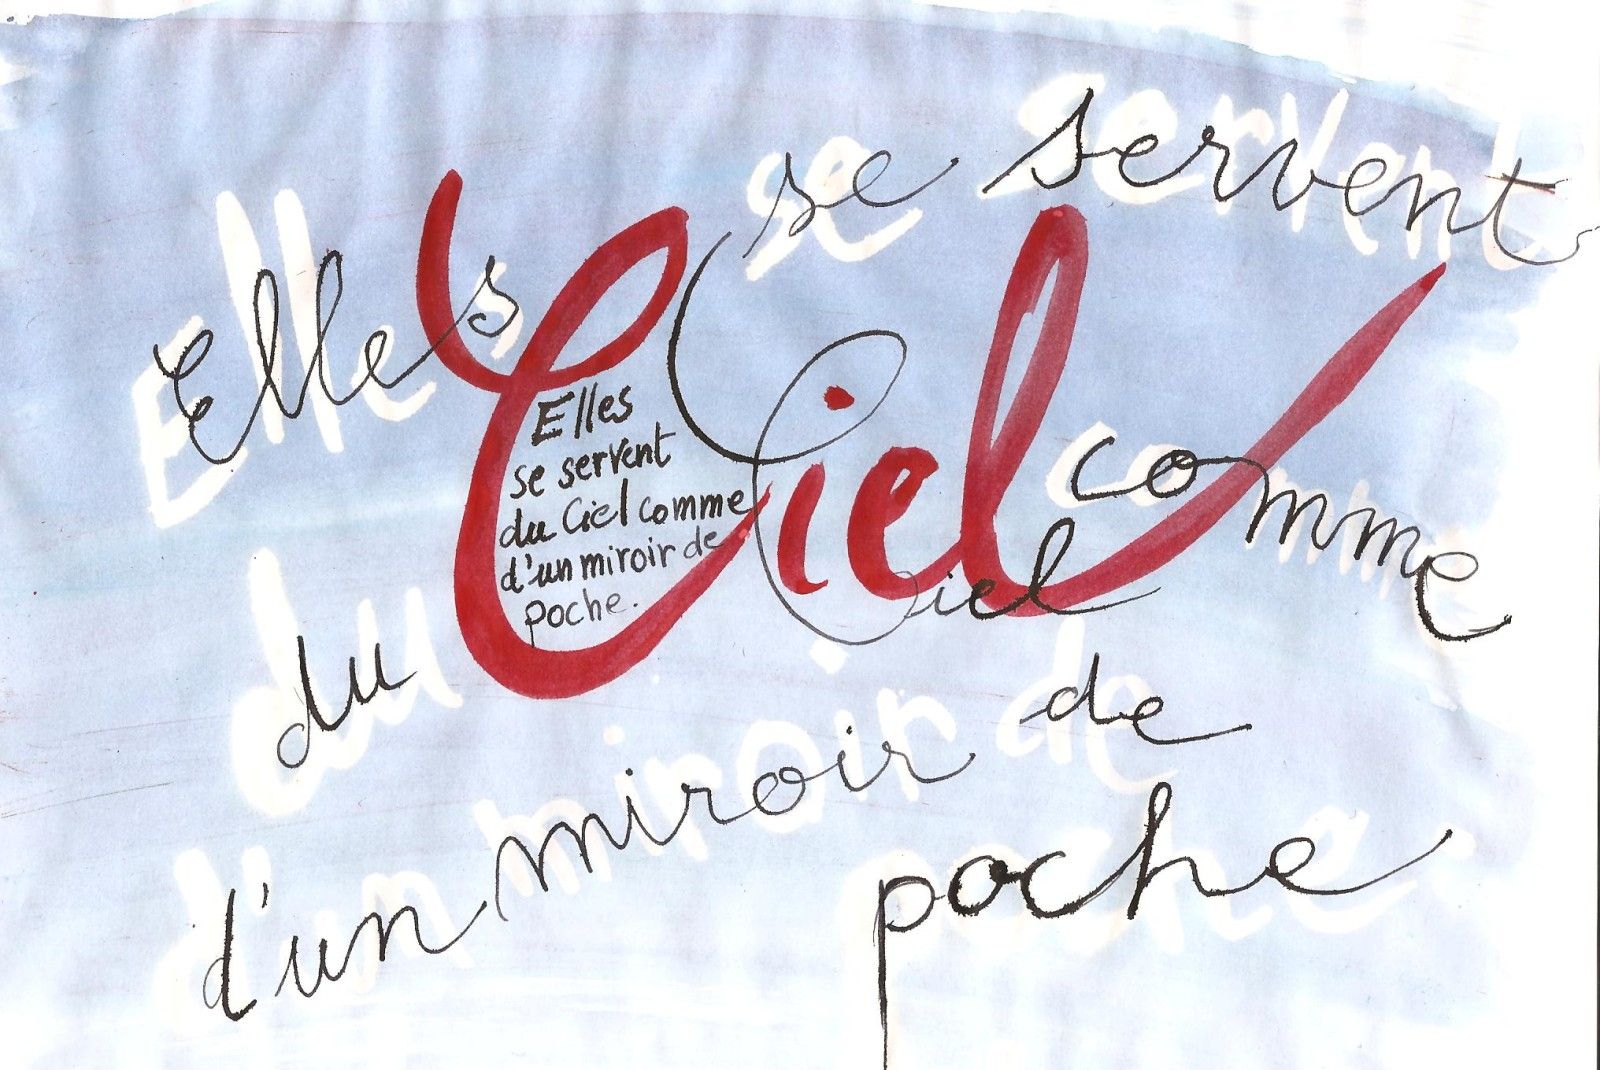 Elles
se servent
du Ciel comme
d'un miroir de
poche
Ciel
Elles
se servent
du Ciel comme
d'un miroir de
poche.
Elles
se servent
du
comme
d'un miroir de
poche.